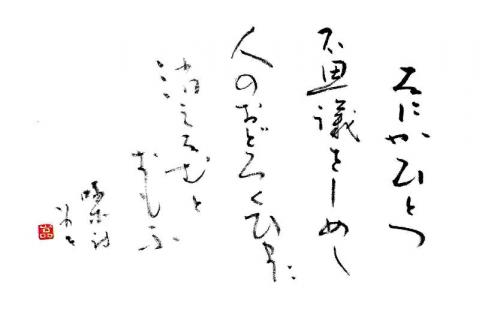 なにかひとつ
不思議をしめし
人のおどろくひまに
消えなむと
おもふ
啄木詩